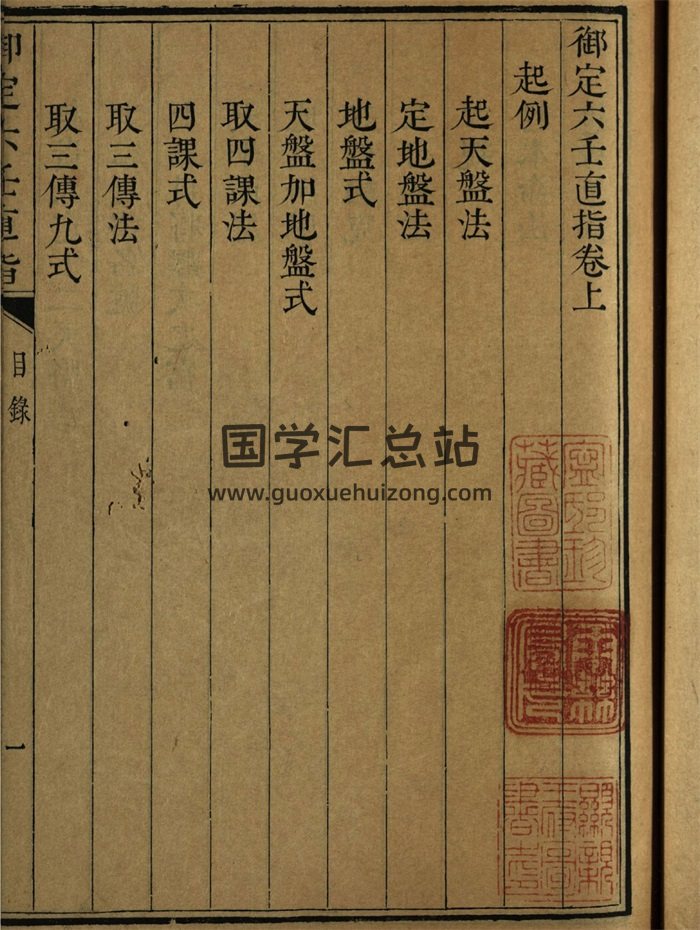 御定六壬直指卷上
起例
起天盤法
定地盤法
地盤式
天盤加地盤式
取四課法
四課式
取三傳法
取三傳九式
御定六壬直指
目錄
一
国学汇总站
www.guoxuehuizong.com
藏圖書